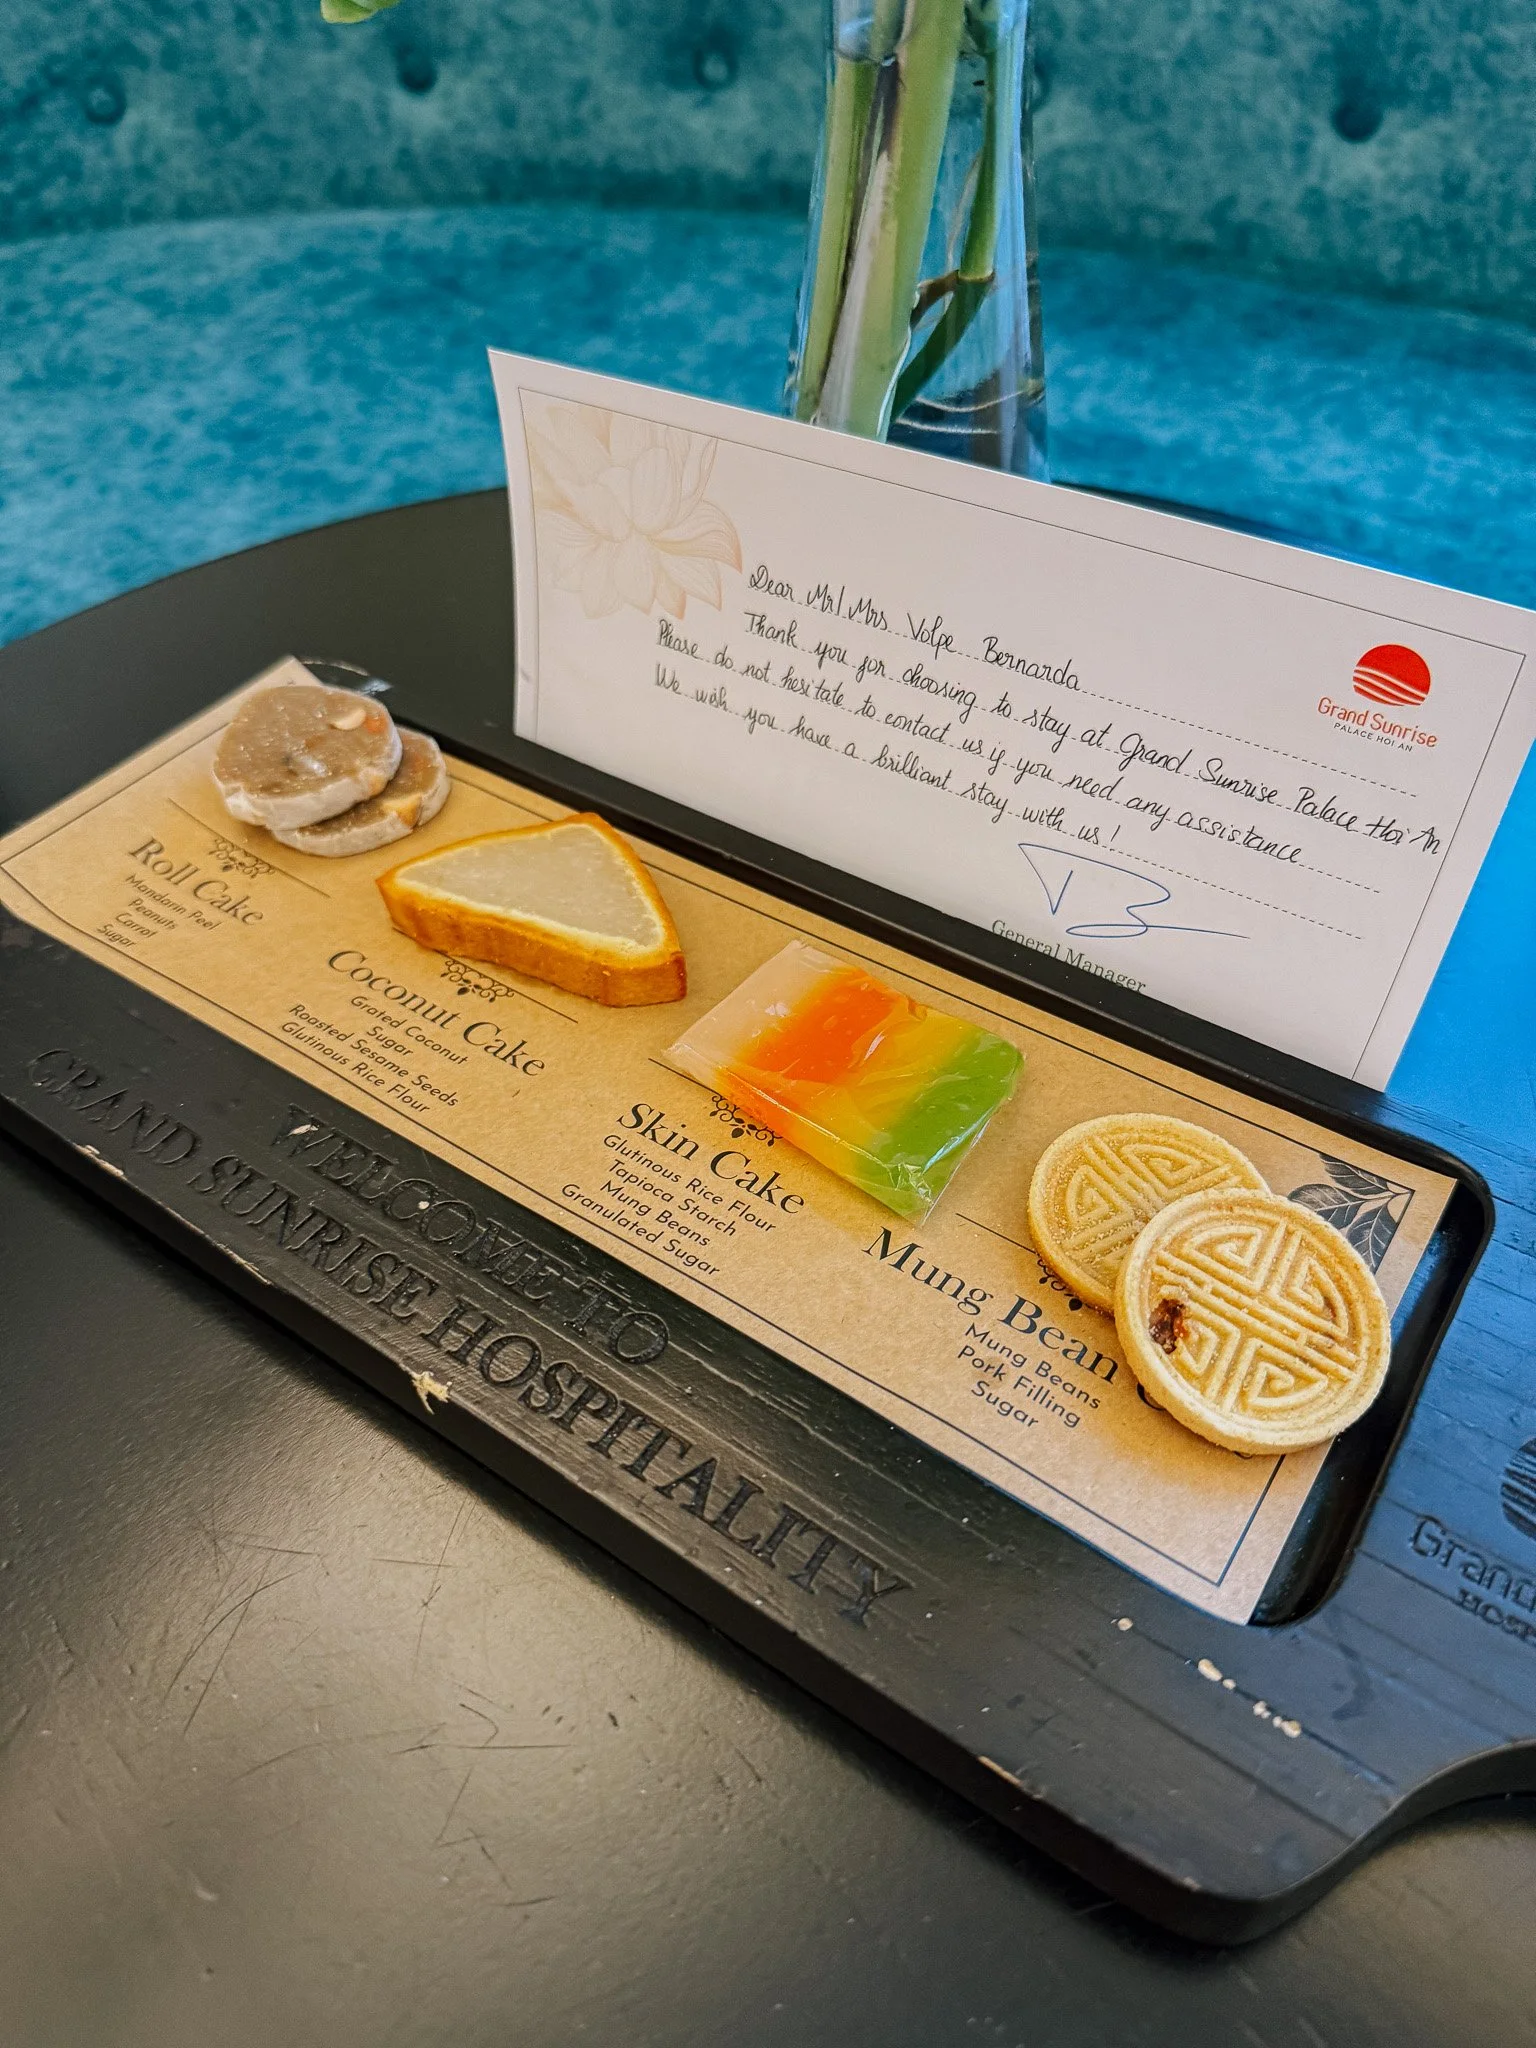 Dear Mr/Mrs Volpe Bernarda
Thank you for choosing to stay at Grand Sunrise Palace Hoi An
Please do not hesitate to contact us if you need any assistance
We wish you have a brilliant stay with us!
General Manager
Grand Sunrise
PALACE HOI AN
Roll Cake
Mandarin Peel
Peanuts
Carrot
Sugar
Coconut Cake
Grated Coconut
Sugar
Roasted Sesame Seeds
Glutinous Rice Flour
Skin Cake
Glutinous Rice Flour
Tapioca Starch
Mung Beans
Granulated Sugar
Mung Bean
Mung Beans
Pork Filling
Sugar
WELCOME TO
GRAND SUNRISE HOSPITALITY
Grand